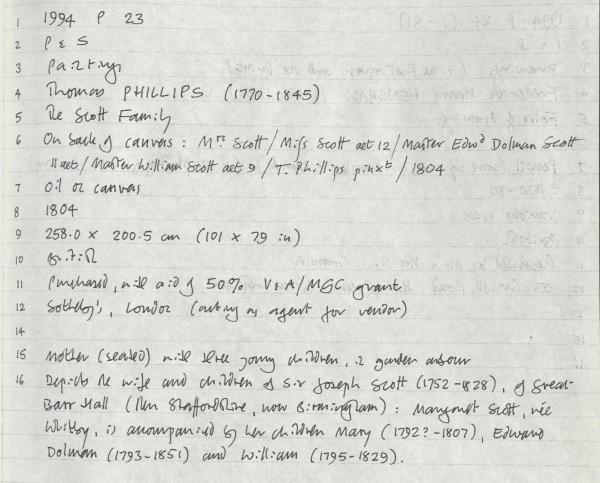 1 1994 P 23
2 P & S
3 Painting
4 Thomas PHILLIPS (1770-1845)
5 The Scott Family
6 On back of canvas : Mrs Scott / Miss Scott aet 12 / Master Edwd Dolman Scott
11 aet / Master William Scott aet 9 / T. Phillips pinxt / 1804
7 Oil on canvas
8 1804
9 258.0 x 200.5 cm (101 x 79 in)
10 British
11 Purchased, with aid of 50% V&A/MGC grant
12 Sotheby's, London (acting as agent for vendor)
14
15 Mother (seated) with three young children, in garden arbour
16 Depicts the wife and children of Sir Joseph Scott (1752-1828), of Great
Barr Hall (then Staffordshire, now Birmingham) : Margaret Scott, née
Whitby, is accompanied by her children Mary (1792?-1807), Edward
Dolman (1793-1851) and William (1795-1829).